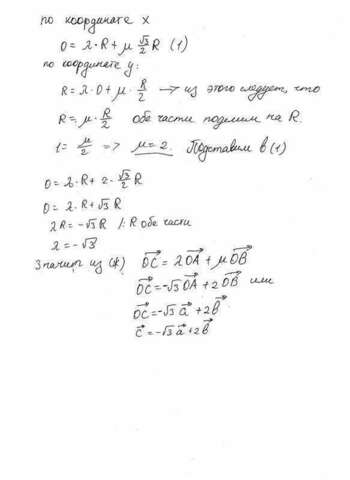 по координате x
0 = λ·R + μ √3/2 R (1)
по координате y:
R = λ·0 + μ · R/2 —> из этого следует, что
R = μ · R/2 обе части поделим на R.
1 = μ/2 => μ = 2. Подставим в (1)
0 = λ·R + 2·√3/2 R
0 = λ·R + √3 R
λR = -√3 R /: R обе части
λ = -√3
Значит из (*) OC = λOA + μOB
OC = -√3 OA + 2 OB или
OC = -√3 a + 2b
c = -√3 a + 2b